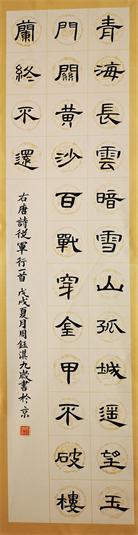 青海長雲暗雪山孤城遥望玉
門關黄沙百戰穿金甲不破樓
蘭終不還
右唐詩從軍行一首 戊戌夏月周鈺淇九歲書於京